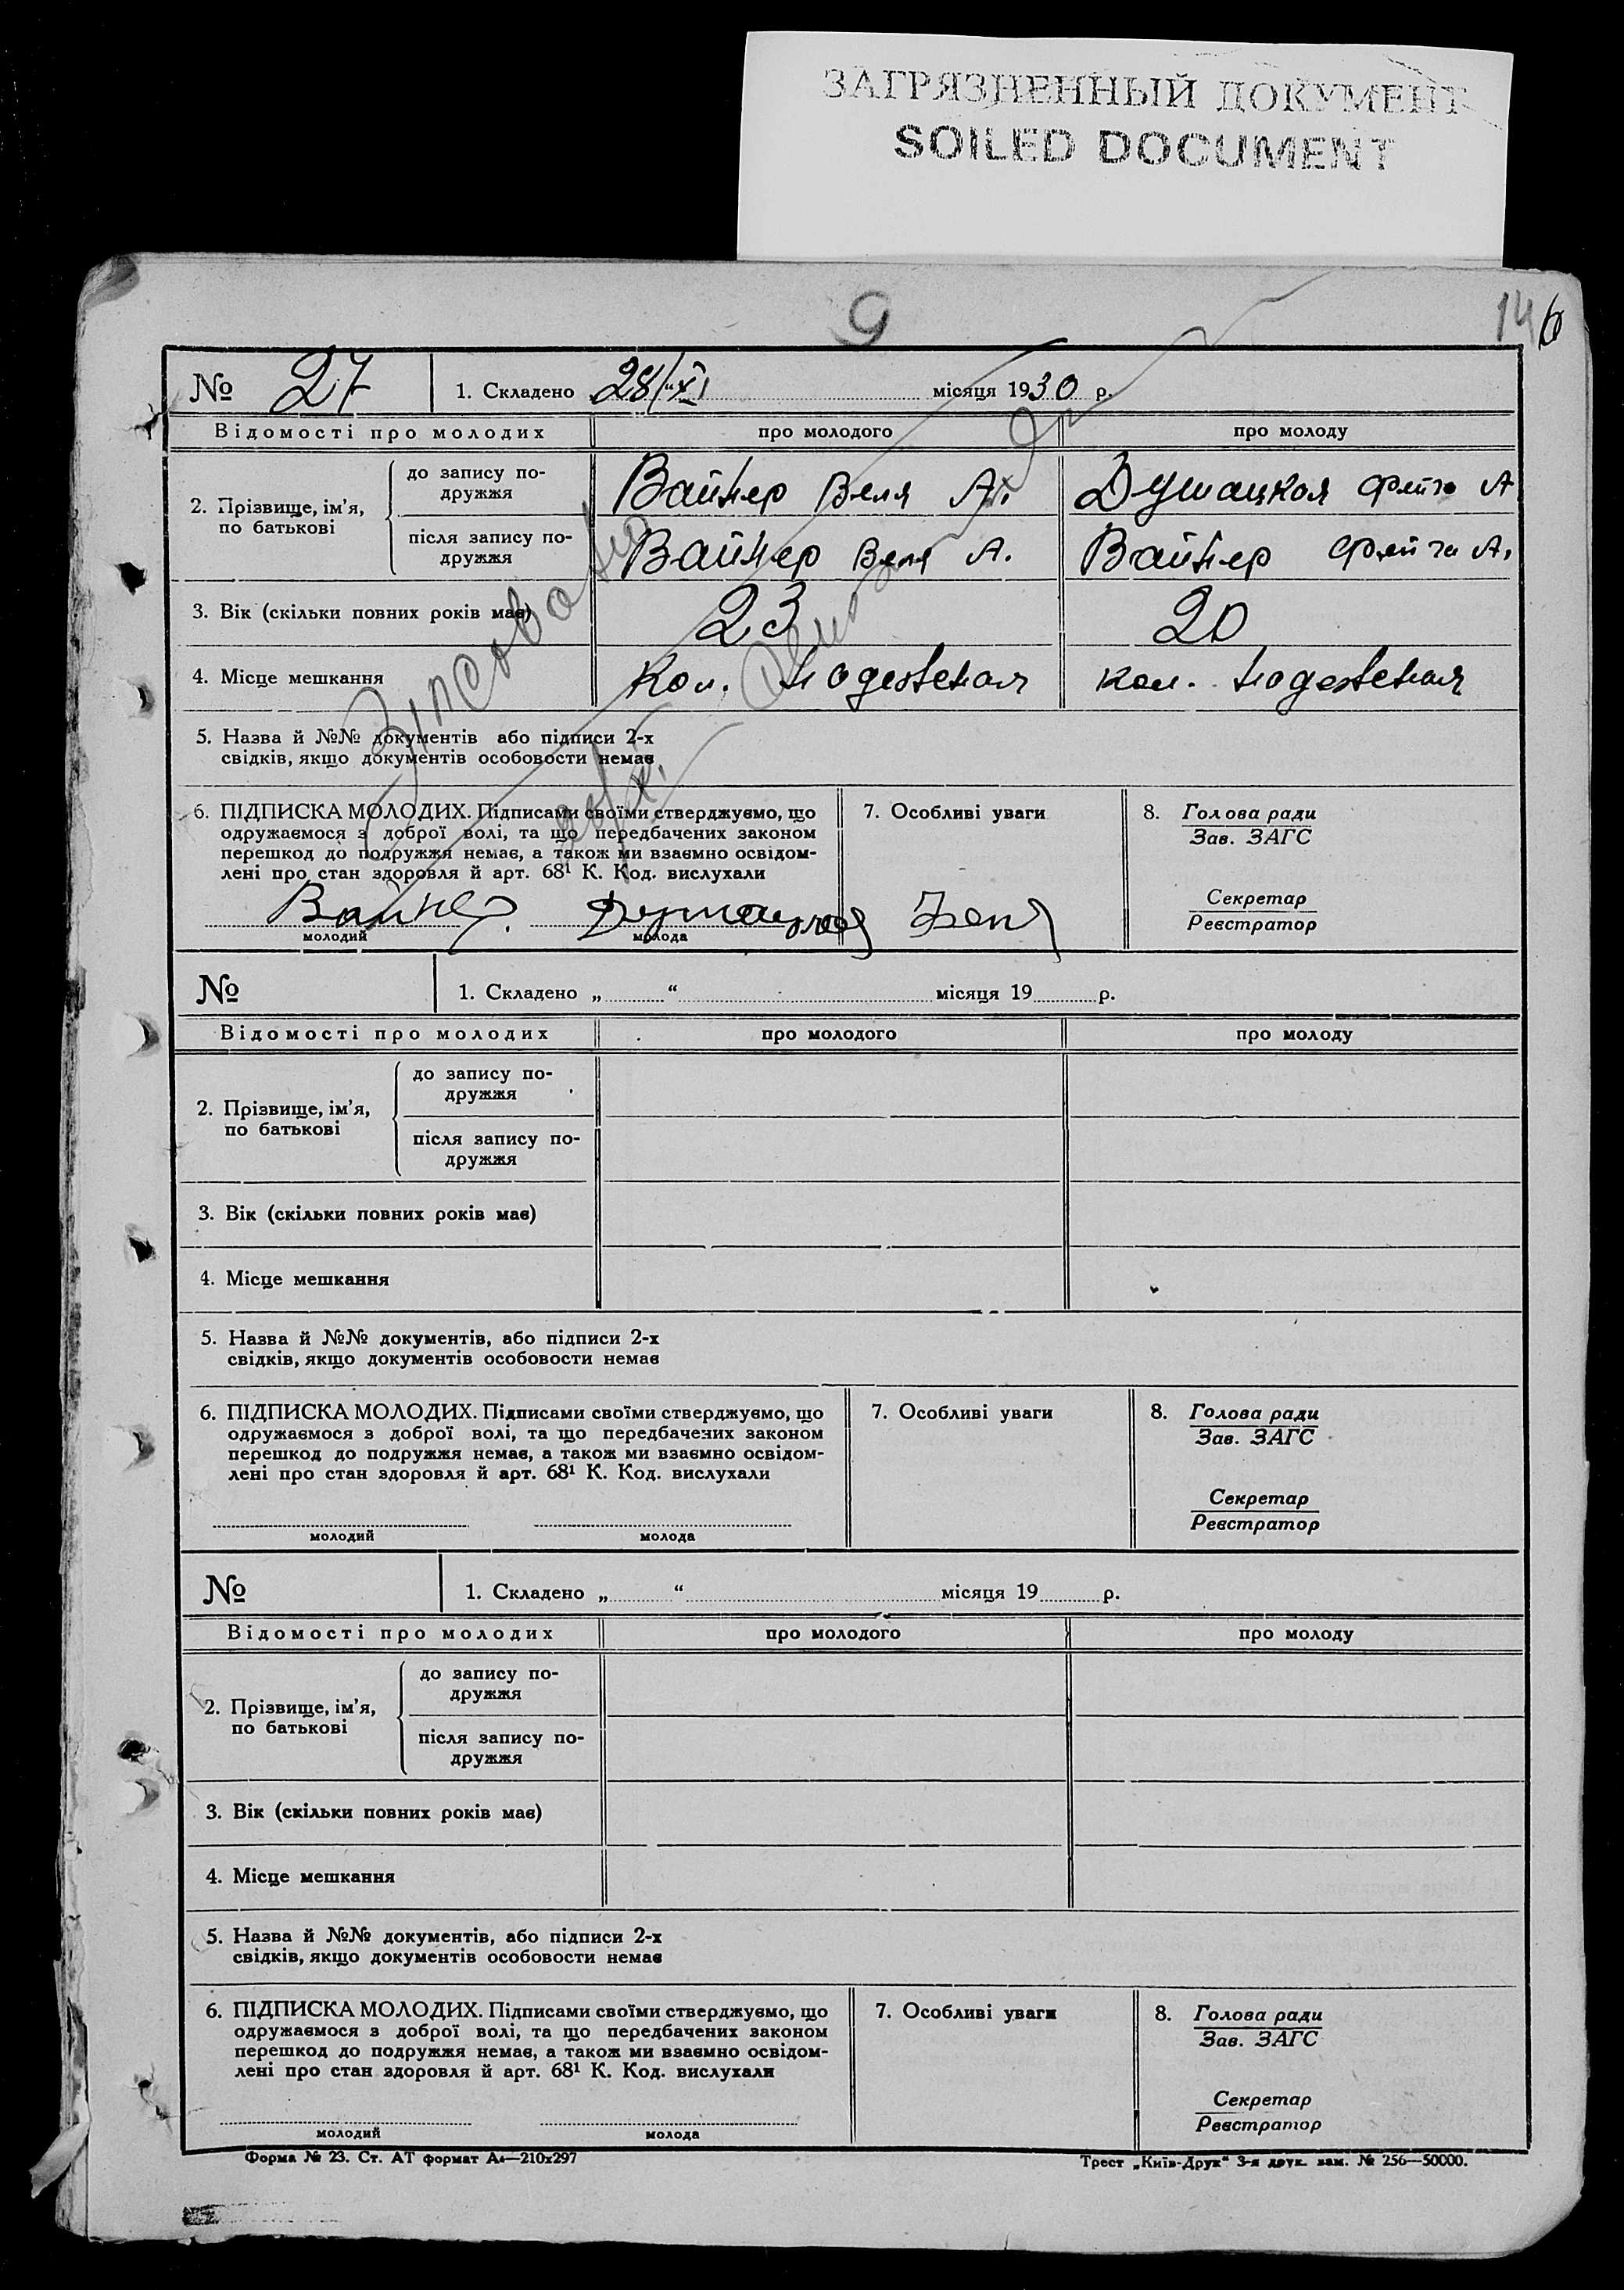 ЗАГРЯЗНЕННЫЙ ДОКУМЕНТ
SOILED DOCUMENT
9
146
№ 27 1. Складено 28/XI місяця 1930 р.
Відомості про молодих про молодого про молоду
2. Прізвище, ім'я, по батькові
до запису по-
дружжя
Вайнер Веля А. Душацкая Фейга А
після запису по-
дружжя
Вайнер Веля А. Вайнер Фейга А.
3. Вік (скільки повних років має) 23 20
4. Місце мешкання Кол. кол.
Зіпсовано
5. Назва й №№ документів або підписи 2-х
свідків, якщо документів особовости немає
6. ПІДПИСКА МОЛОДИХ. Підписами своїми стверджуємо, що
одружаємося з доброї волі, та що передбачених законом
перешкод до подружжя немає, а також ми взаємно освідом-
лені про стан здоровля й арт. 68¹ К. Код. вислухали
Вайнер.
молодий молода
7. Особливі уваги
8. Голова ради
Зав. ЗАГС
Секретар
Реєстратор
№ 1. Складено „ “ місяця 19 р.
Відомості про молодих про молодого про молоду
2. Прізвище, ім'я,
по батькові
до запису по-
дружжя
після запису по-
дружжя
3. Вік (скільки повних років має)
4. Місце мешкання
5. Назва й №№ документів, або підписи 2-х
свідків, якщо документів особовости немає
6. ПІДПИСКА МОЛОДИХ. Підписами своїми стверджуємо, що
одружаємося з доброї волі, та що передбачених законом
перешкод до подружжя немає, а також ми взаємно освідом-
лені про стан здоровля й арт. 68¹ К. Код. вислухали
молодий молода
7. Особливі уваги
8. Голова ради
Зав. ЗАГС
Секретар
Реєстратор
№ 1. Складено „ “ місяця 19 р.
Відомості про молодих про молодого про молоду
2. Прізвище, ім'я,
по батькові
до запису по-
дружжя
після запису по-
дружжя
3. Вік (скільки повних років має)
4. Місце мешкання
5. Назва й №№ документів, або підписи 2-х
свідків, якщо документів особовости немає
6. ПІДПИСКА МОЛОДИХ. Підписами своїми стверджуємо, що
одружаємося з доброї волі, та що передбачених законом
перешкод до подружжя немає, а також ми взаємно освідом-
лені про стан здоровля й арт. 68¹ К. Код. вислухали
молодий молода
7. Особливі уваги
8. Голова ради
Зав. ЗАГС
Секретар
Реєстратор
Форма № 23. Ст. АТ формат А4—210х297
Трест „Київ-Друк“ 3-я друк. зам. № 256—50000.